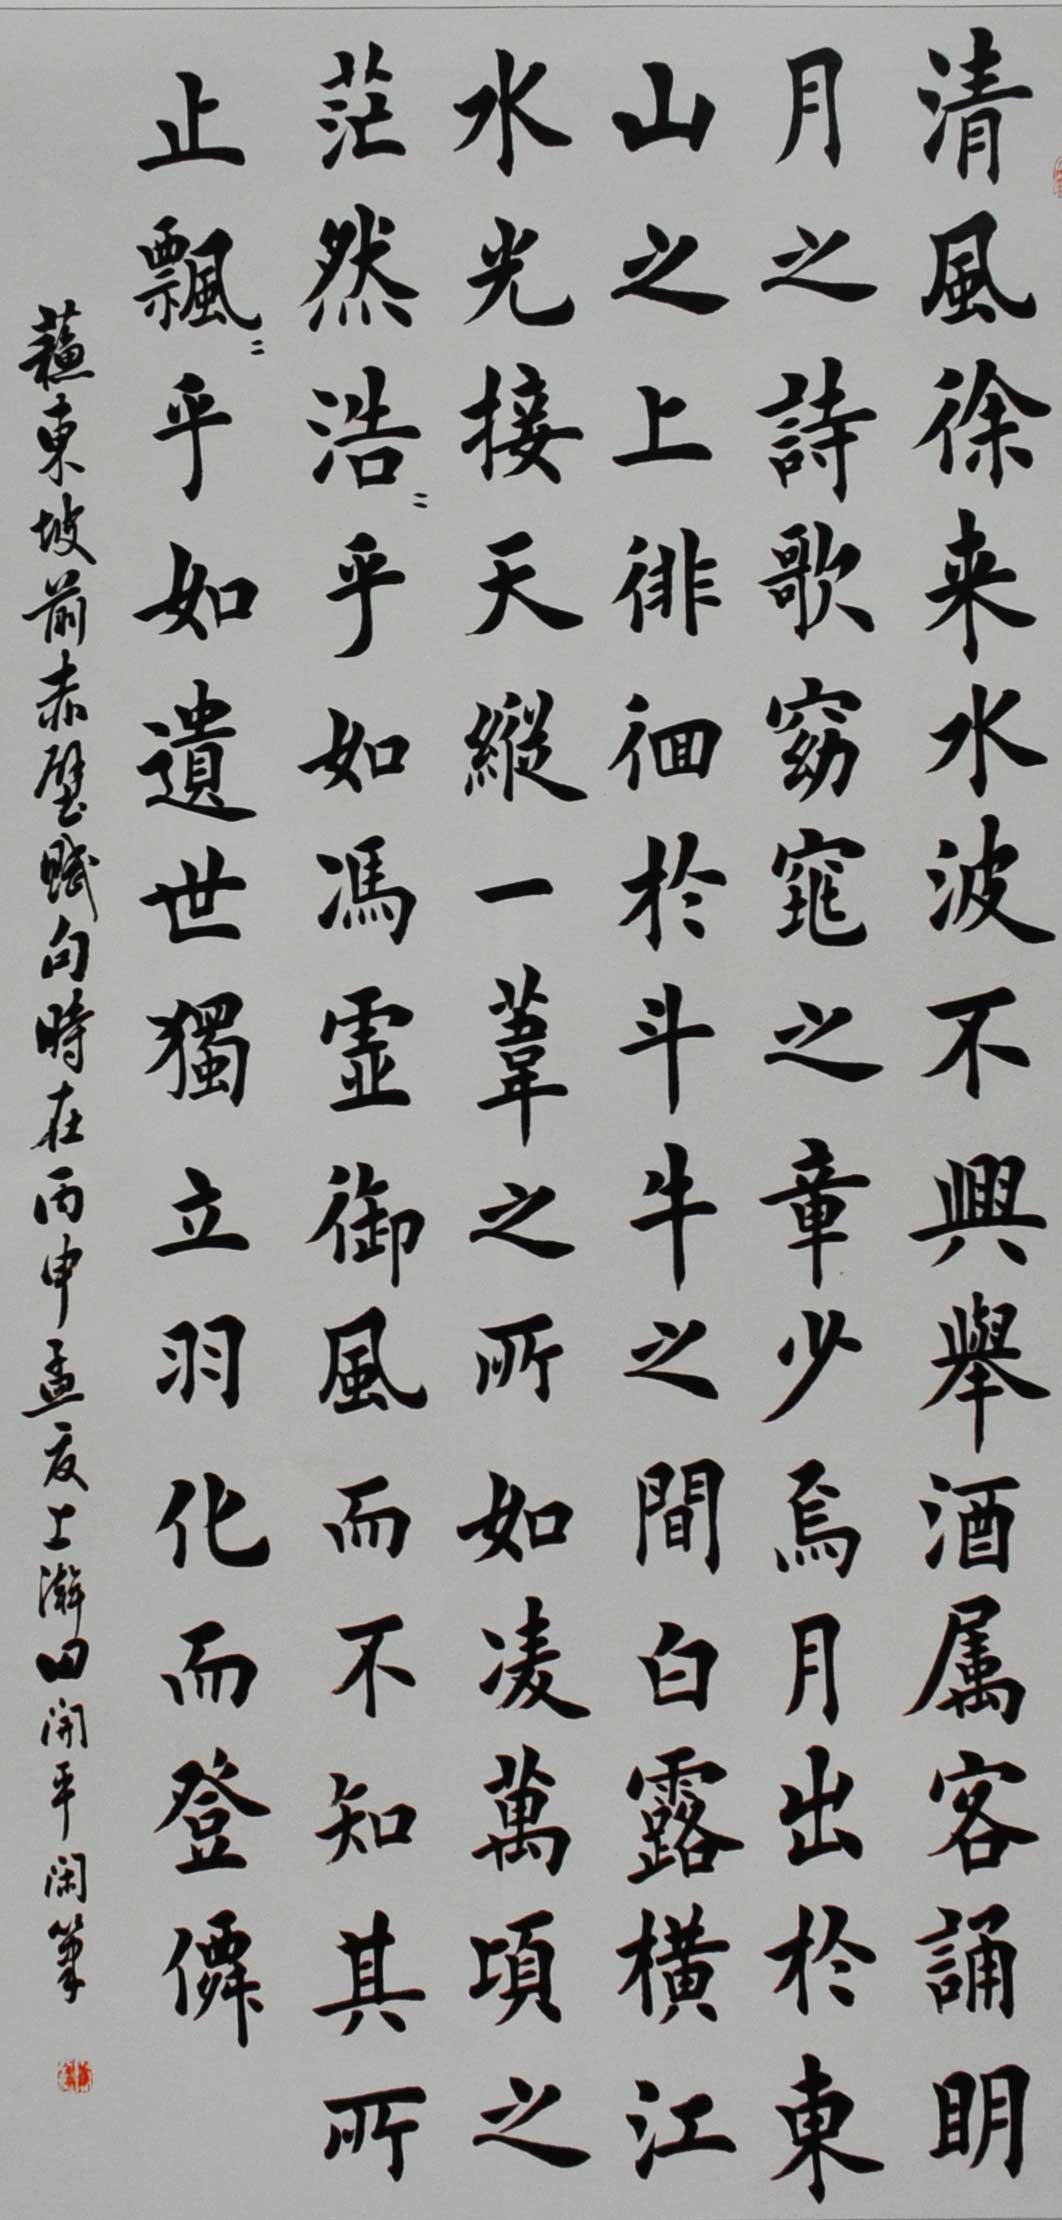 清風徐来水波不興舉酒属客誦明
月之詩歌窈窕之章少焉月出於東
山之上徘徊於斗牛之間白露橫江
水光接天縱一葦之所如凌萬頃之
茫然浩〻乎如馮虛御風而不知其所
止飄〻乎如遺世獨立羽化而登僊
蘓東坡前赤壁賦句時在丙申孟夏上澣田開平閑筆